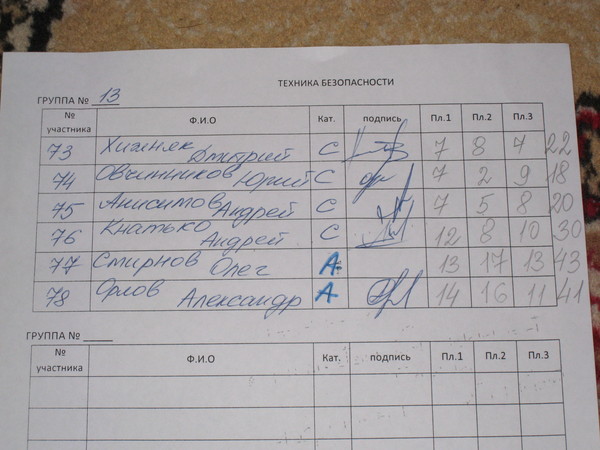 ТЕХНИКА БЕЗОПАСНОСТИ
ГРУППА № 13
№ участника Ф.И.О Кат. подпись Пл.1 Пл.2 Пл.3
73 Хижняк Дмитрий С 7 8 7 22
74 Овчинников Юрий С 7 2 9 18
75 Анисимов Андрей С 7 5 8 20
76 Кнатько Андрей С 12 8 10 30
77 Смирнов Олег А 13 17 13 43
78 Орлов Александр А 14 16 11 41
ГРУППА №
№ участника Ф.И.О Кат. подпись Пл.1 Пл.2 Пл.3